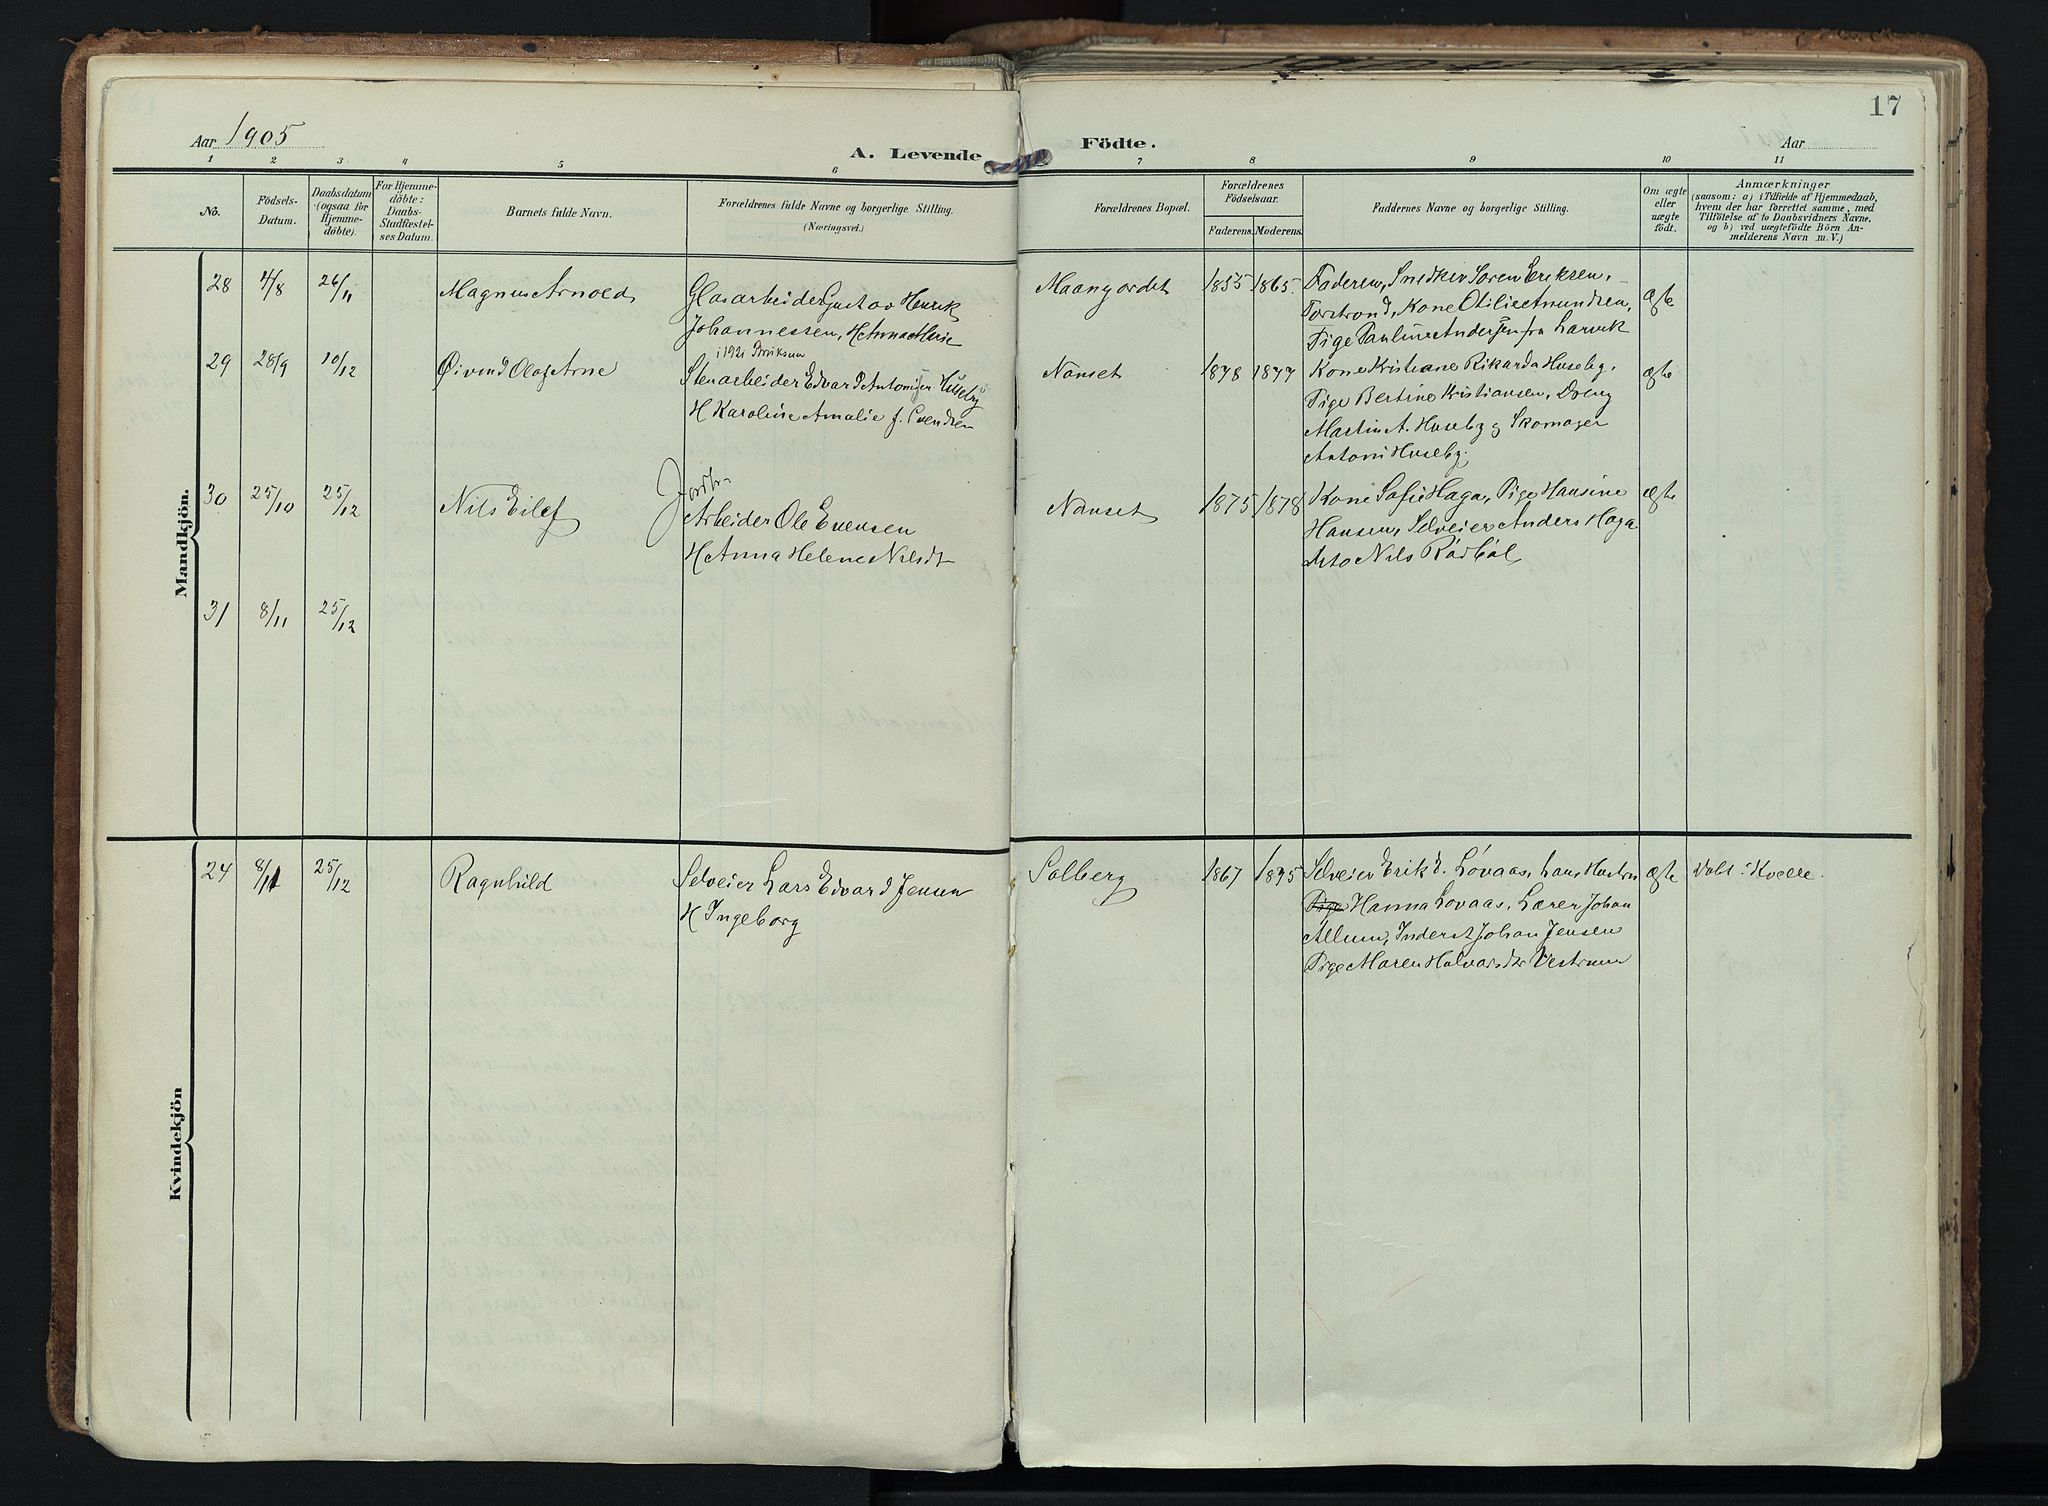 17
Aar 1905
A. Levende
Födte.
Aar
1 2 3 4 5 6 7 8 9 10 11
No.
Födsels-
Datum.
Daabsdatum
(ogsaa for
Hjemme-
döbte).
For Hjemme-
döbte:
Daabs-
Stadfæstel-
ses Datum.
Barnets fulde Navn.
Forældrenes fulde Navne og borgerlige Stilling.
(Næringsvei.)
Forældrenes Bopæl.
Forældrenes
Födselsaar.
Faderens. Moderens.
Faddernes Navne og borgerlige Stilling.
Om ægte
eller
uægte
födt.
Anmærkninger
(saasom: a) i Tilfælde af Hjemmedaab,
hvem der har forrettet samme, med
Tilföielse af to Daabsvidners Navne,
og b) ved uægtefödte Börn An-
melderens Navn m. V.)
Mandkjön.
28 4/8 26/11 Magnus Arnold
Glasarbeider Gustav Henrik
Johannessen, H Anna
Maangordet 1855 1865.
Faderen, Snedker Soren Eriksen,
Torstrond, Kone Otilie Amundsen,
Pige Pauline Andersen fra Larvik
ægte
29 28/9 10/12 Øivind Olaf Arne
i 1921
Stenarbeider Edvard Antonisen Huseby
H Karoline Amalie f. Evendsen
Nanset 1878 1877
Kone Kristiane Rikarda Huseby,
Pige Bertine Kristiansen, Dreng
Martin A. Huseby og Skomager
Antoni Huseby.
ægte
30 25/10 25/12 Nils Eilef
Arbeider Ole Evensen
H Anna Helene Nilsdt
Nanset 1875 1878
Kone Sofie Haga, Pige Hansine
Hansen, Selveier Anders Haga
dito Nils Rødbøl
ægte
31 8/11 25/12
Kvindekjön
24 8/11 25/12 Ragnhild
Selveier Lars Edvard Jensen
H Ingeborg
Solberg 1867 1875
Selveier Erik d. Løvaas, hans Hustru
Pige Hanna Lovaas, Lærer Johan
Allum, Inderst Johan Jensen
Pige Maren Halvorsdtr Vestrum
ægte
Døbt i Kvelle.